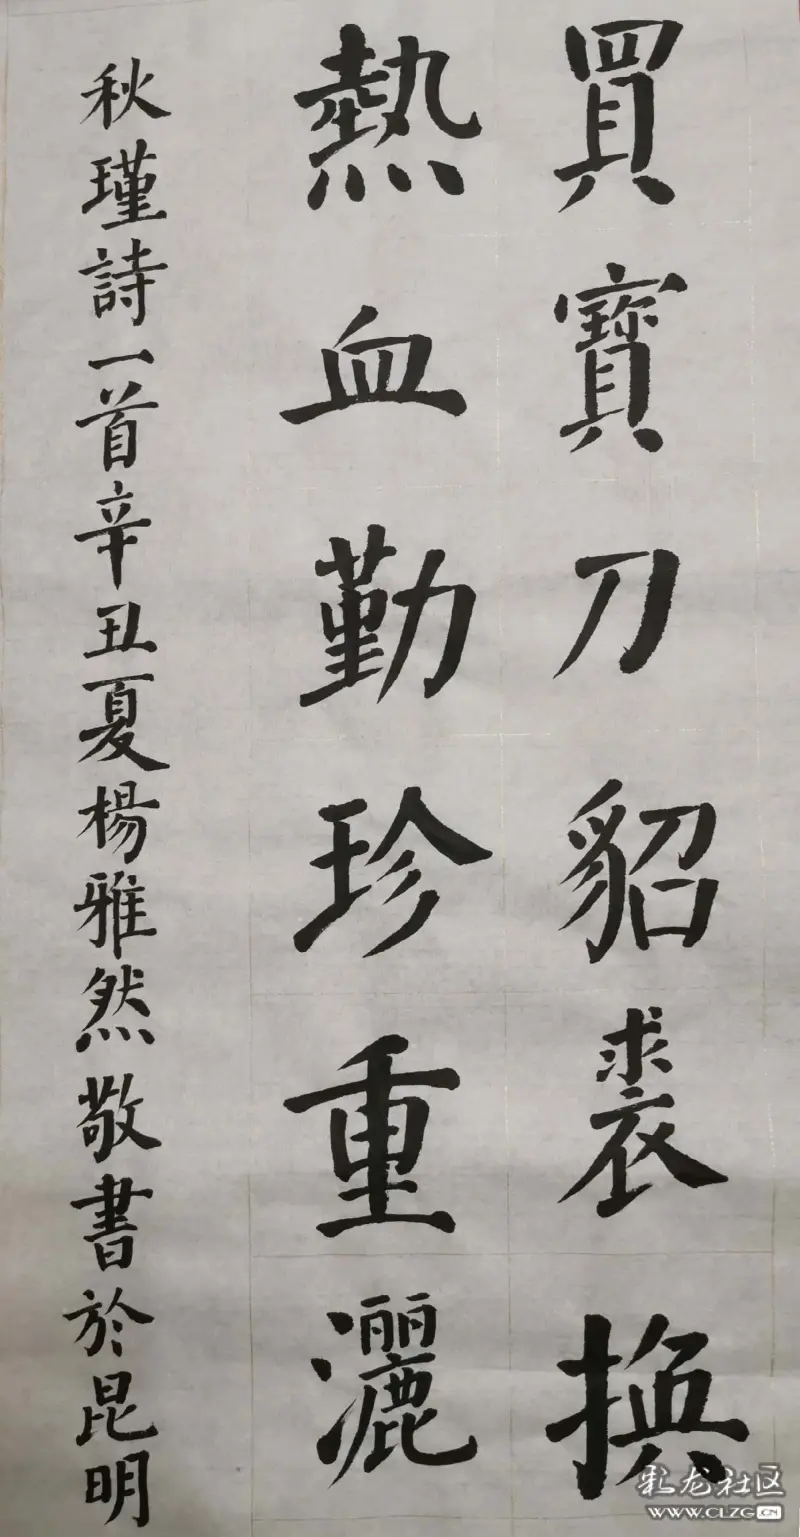 買寶刀貂裘換
熱血勤珍重灑
秋瑾詩一首辛丑夏楊雅然敬書於昆明
彩龙社区
WWW.CLZG.CN